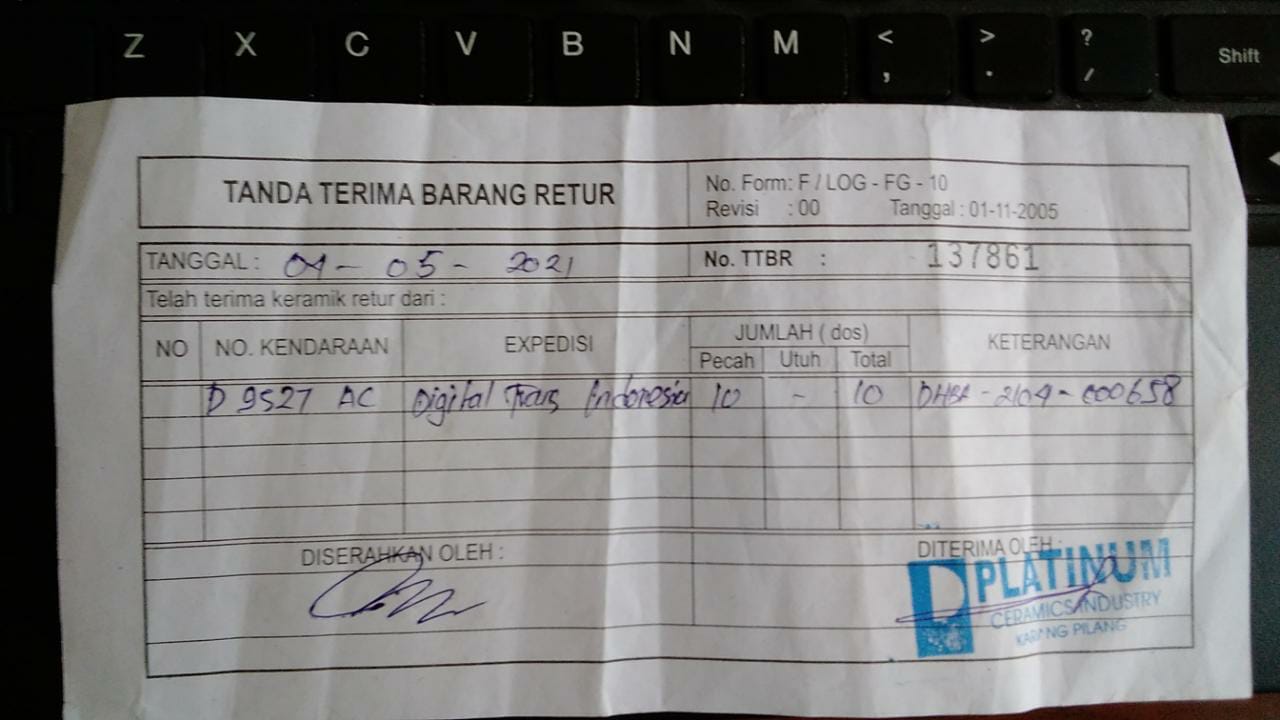 Z X C V B N M < , > . ? / Shift
TANDA TERIMA BARANG RETUR
No. Form: F / LOG - FG - 10
Revisi : 00 Tanggal : 01-11-2005
TANGGAL : 04 - 05 - 2021
No. TTBR : 137861
Telah terima keramik retur dari :
NO NO. KENDARAAN EXPEDISI JUMLAH ( dos) KETERANGAN
Pecah Utuh Total
D 9527 AC Digital Trans Indonesia 10 - 10 2104 - 000658
DISERAHKAN OLEH :
DITERIMA OLEH :
PLATINUM
CERAMICS INDUSTRY
KARANG PILANG